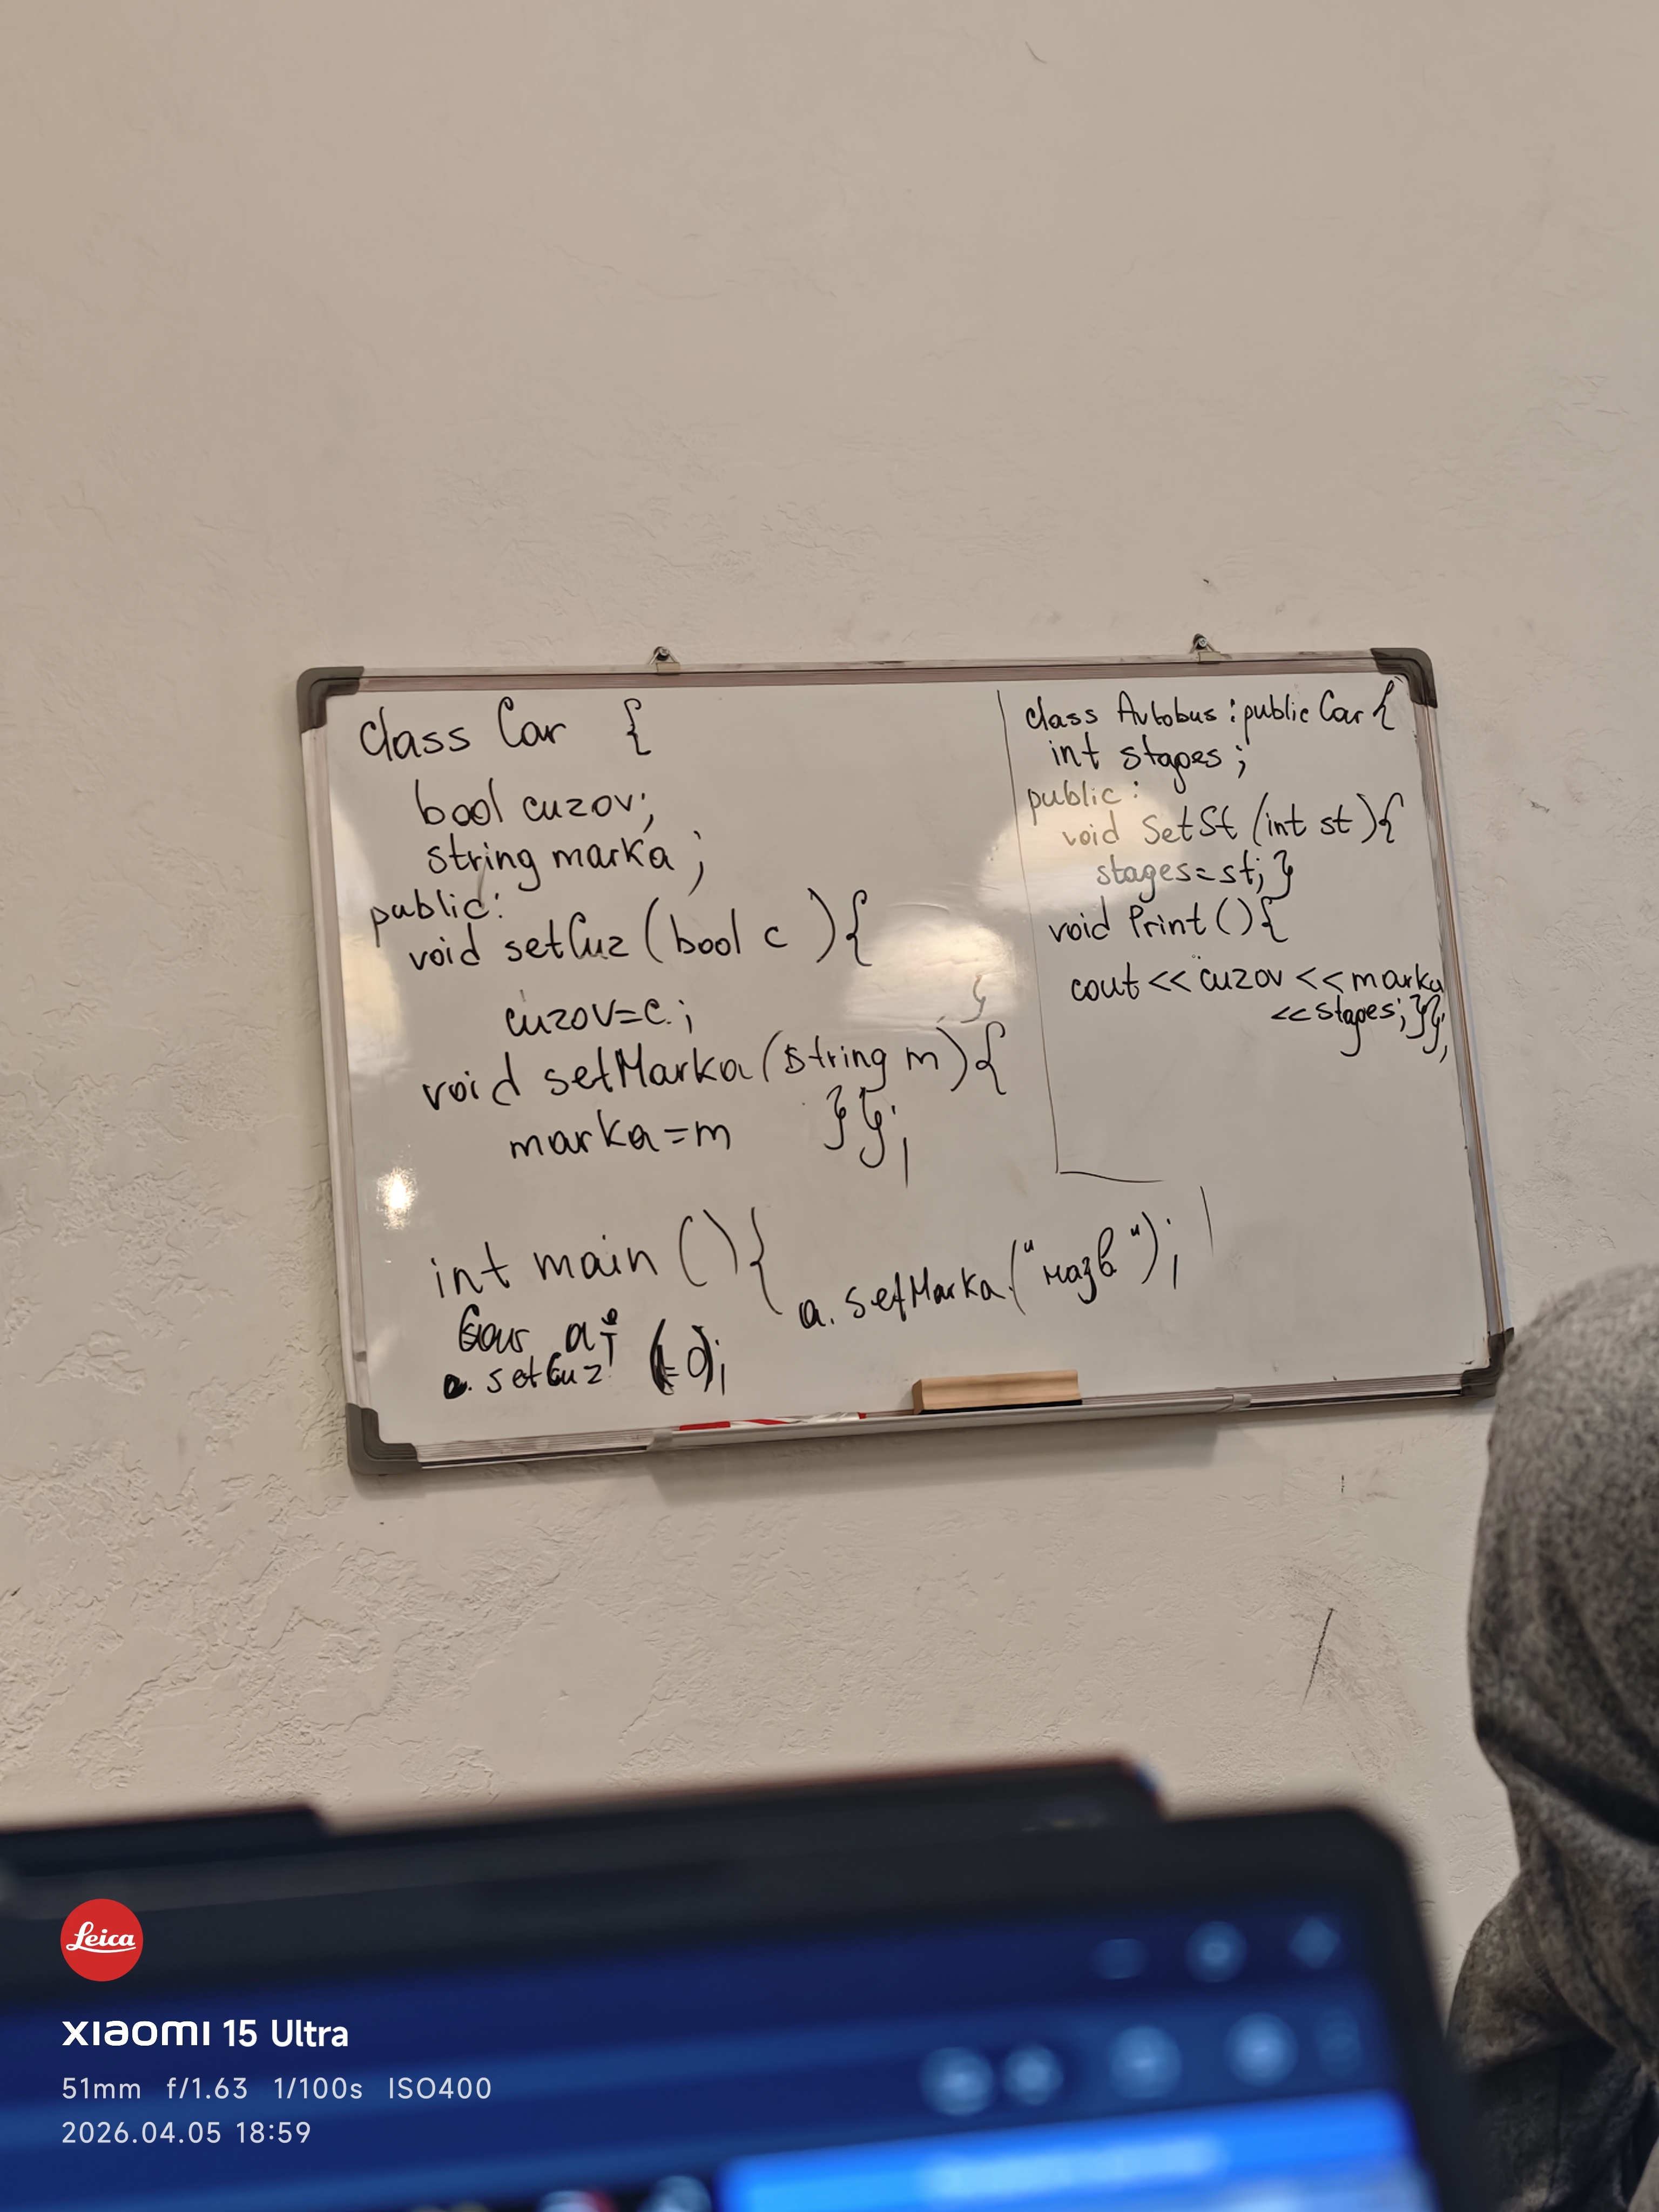 class Car {
bool cuzov;
string marka;
public:
void setCuz (bool c ){
cuzov=c; }
void setMarka(string m){
marka=m }};
int main (){
Car a;
a. setCuz (0);
a. setMarka("назв");
class Avtobus : public Car {
int stages;
public:
void SetSt (int st){
stages=st; }
void Print (){
cout << cuzov << marka
<< stages; }};
Leica
XIAOMI 15 Ultra
51mm f/1.63 1/100s ISO400
2026.04.05 18:59